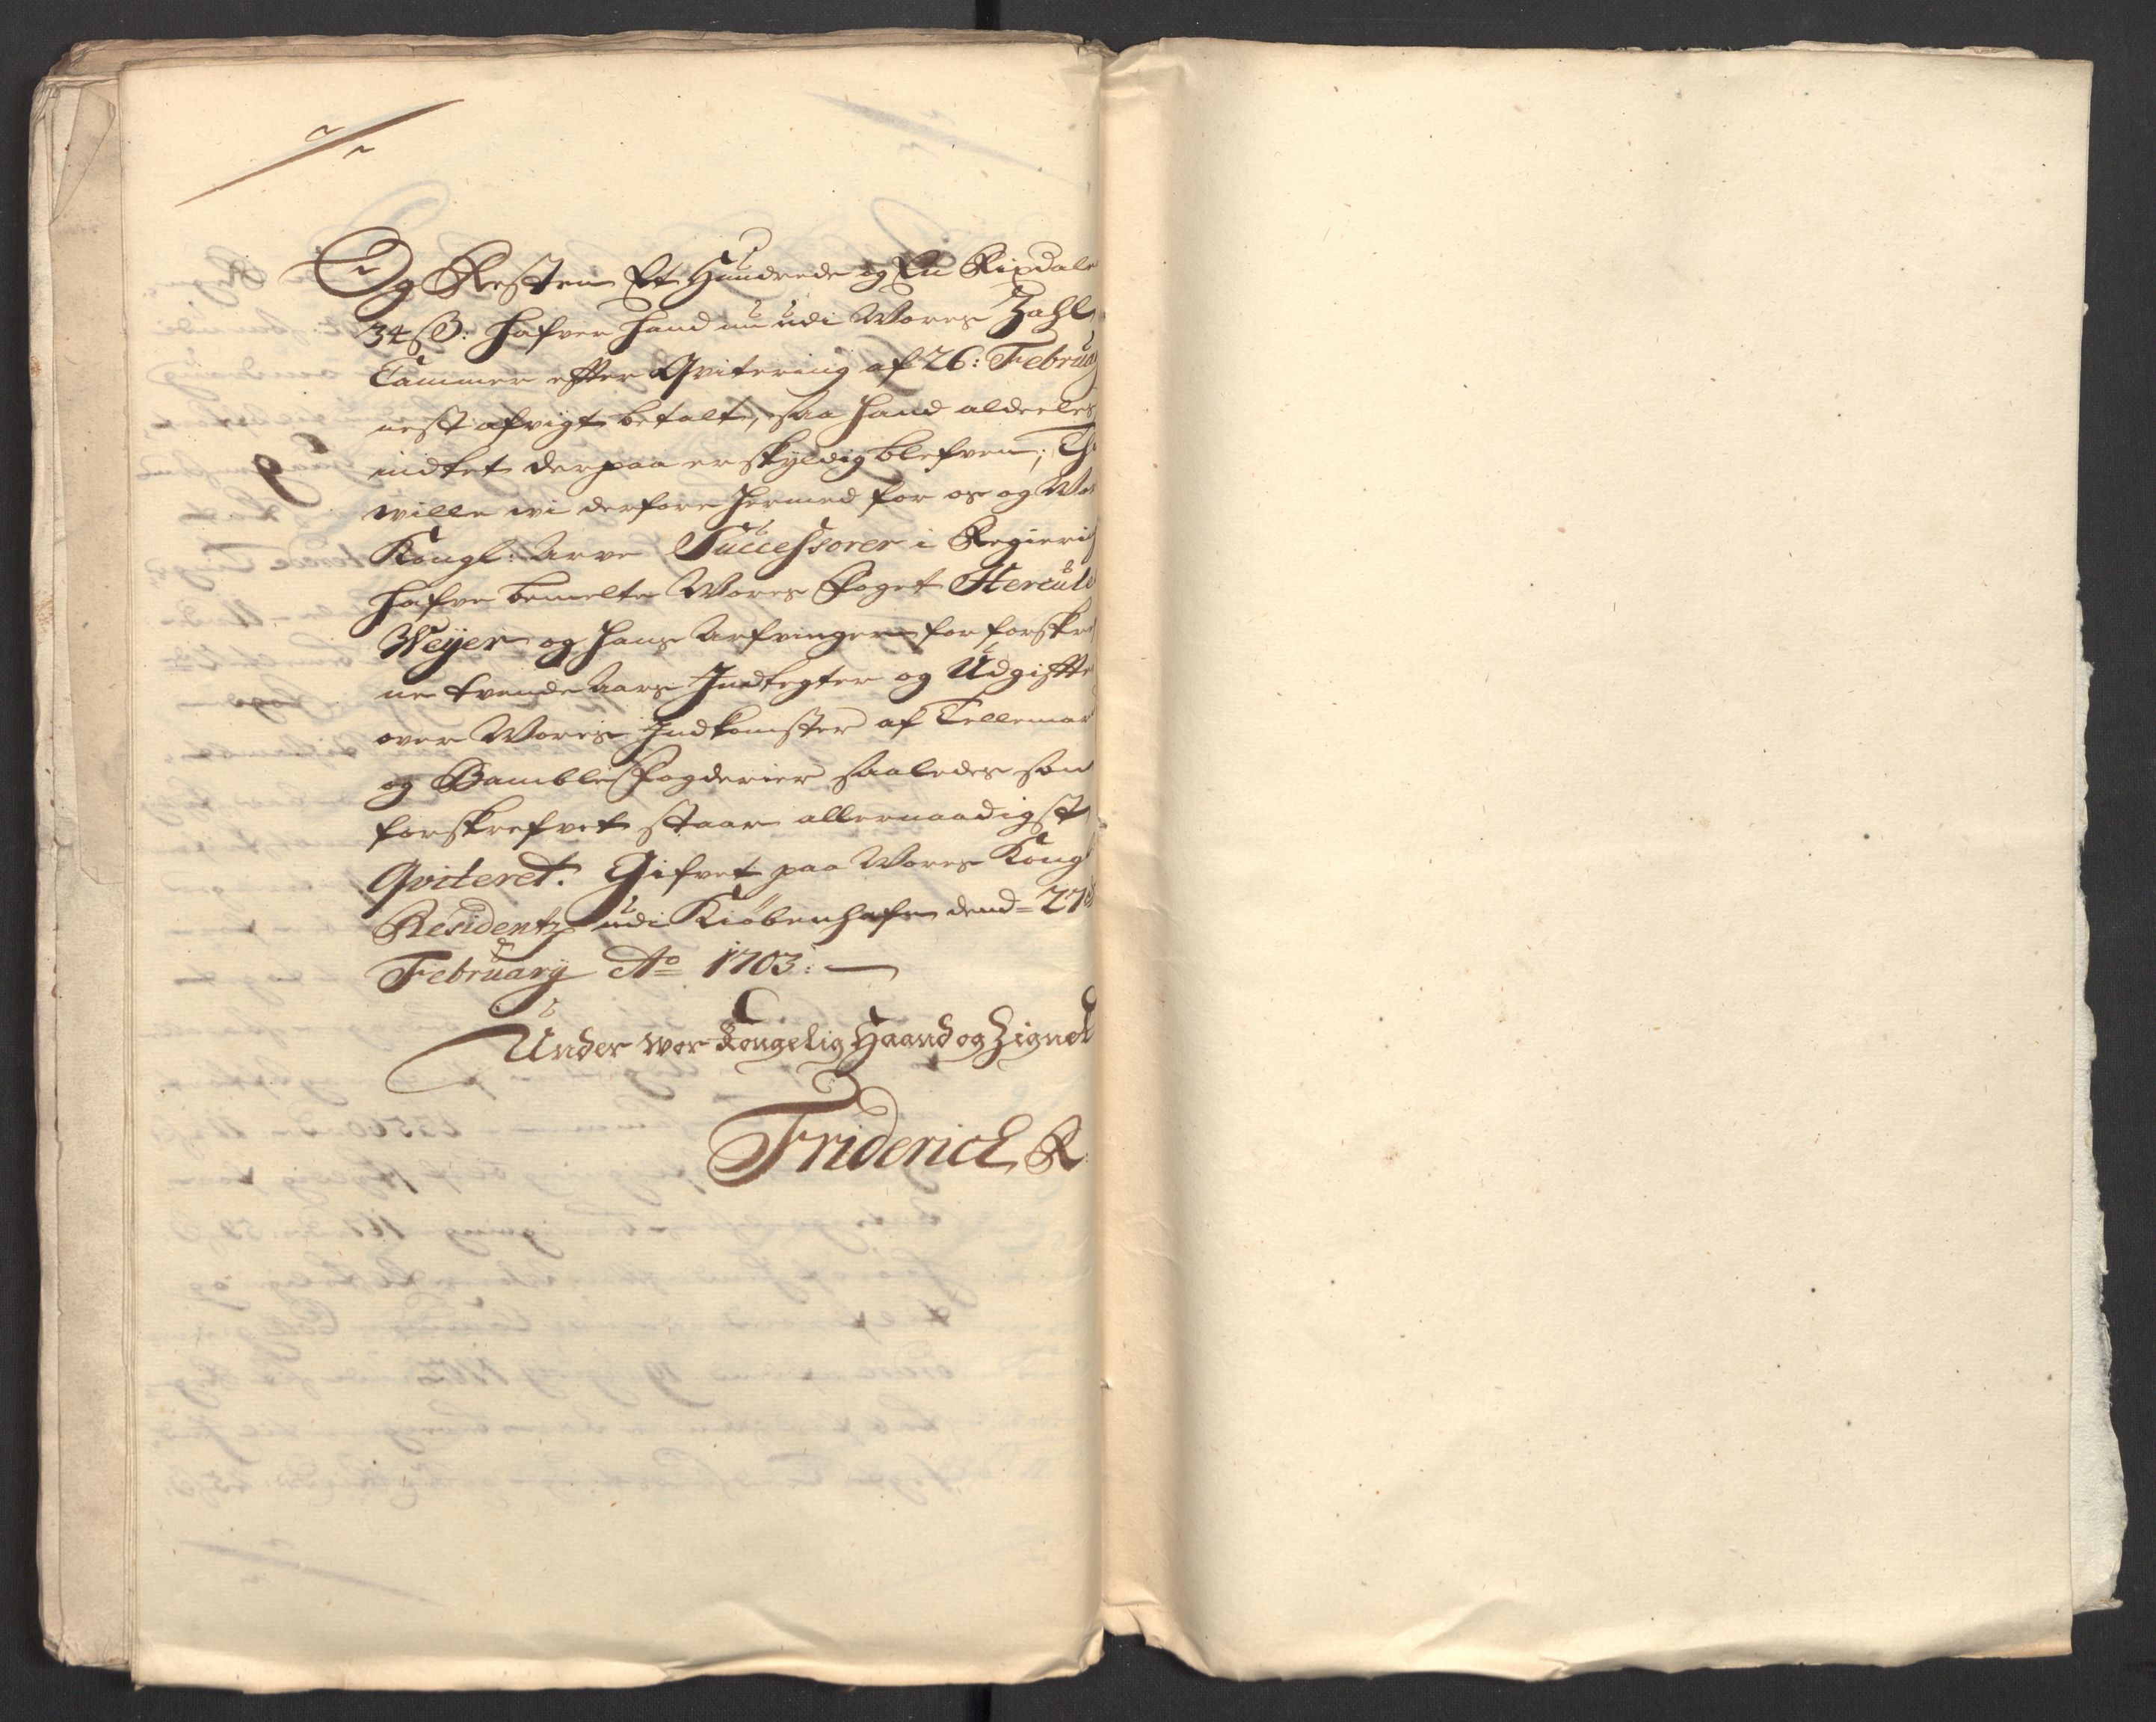 Og Resten Et Hundrede og En Rixdale
34 ß: hafver hand nu udi Vores Zahl
Cammer efter Qvitering af 26: Februa
nest afvigt betalt, saa hand aldeeles
indtet derpaa er skyldig blefven; Thi
wille wi derfore hermed for os og Vor
Kongl: Arve Successorer i Regierin
hafve bemelte Vores Foget Hercule
Weyer og hans Arfvinger for forskre
ne tvende Aars Indtegter og Udgiffte
over Vores Indkomster af Tellemar
og Bamble Fogderier saaledes som
forskrefvet staar allernaadigst
Qviteret. Gifvet paa Vores Kong
Residentz udi Kiøbenhafn dend = 27
February Ao 1703: —
Under vor Kongelig Haand og Zignet
Friderich R: